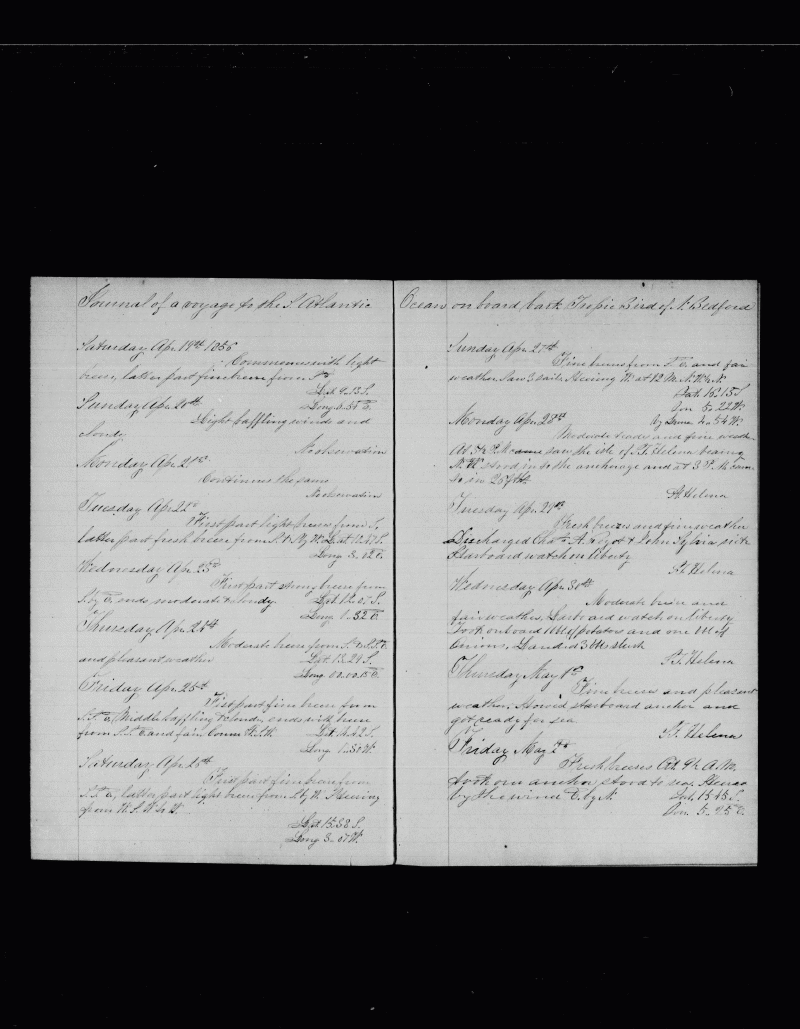 Journal of a voyage to the S Atlantic
Saturday Apr. 19th 1856
Commences with light
breeze, latter part fine breeze from S
Lat. 9..13 S.
Long. 3..51 E.
Sunday Apr. 20th
Light baffling winds and
cloudy
No observation
Monday Apr. 21st
Continues the same
No observation
Tuesday Apr. 22d
First part light breeze from S,
latter part fresh breeze from
Long. 3..02 E.
Wednesday Apr. 23d
First part strong breeze from
S. by E, ends moderate & cloudy. S.
Long. 1..32 E.
Thursday Apr. 24th
Moderate breeze from S. to S.S.E
and pleasant weather Lat. 13..24 S.
Long. 00..00..15 E.
Friday Apr. 25th
First part fine breeze from
S.S.E, Middle baffling & cloudy, ends with breeze
from S.S.E and fair. Course W.S.W. Lat. 14..42 S.
Long. 1..30 W.
Saturday Apr. 26th
First part fine breeze from
S.S.E, latter part light breeze from S. by W. Steering
from W.S.W to W.
Lat. 15..38 S.
Long. 3..07 W.
Ocean on board bark Tropic Bird of N. Bedford
Sunday Apr. 27th
Fine breeze from S.E. and fair
weather. Saw 3 sails Steering W. at 12 M. N.W. & N.
Lat. 16..15 S
Lon 5..22 W.
by Luna 4..56 W.
Monday Apr. 28th
Moderate steady and fine weather
At P.M. saw the isle of St. Helena bearing
N.W. stood in to the anchorage and at 3 P.M. came
to in 20 fths
St. Helena
Tuesday Apr. 29th
Fresh breezes and fine weather
Discharged Chas. A. Pigot & John Sylvia sick
Starboard watch on liberty
St. Helena
Wednesday Apr. 30th
Moderate breeze and
fair weather, Larboard watch on liberty.
Took on board potatoes and one of
onions, Landed 3
St. Helena
Thursday May 1st
Fine breeze and pleasant
weather. Howed starboard anchor and
got ready for sea
St. Helena
Friday May 2d
Fresh breezes At 9h A.M.
took our anchor stood to sea. Steered
by the wind E. by N. Lat. 15..43 S.
Lon. 5..25 E.